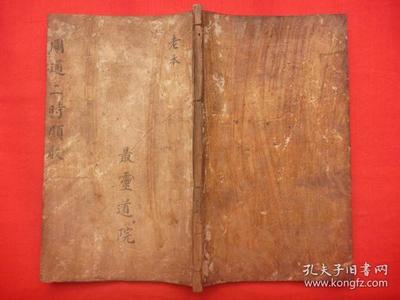 老本
周通二時頒教
最靈道院
孔夫子旧书网
www.kongfz.com